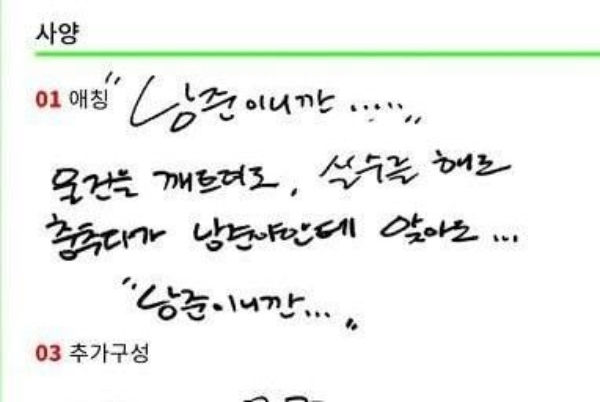 사양
01 애칭 "낭준이니깐 ....."
물건을 깨트려도, 실수를 해도
충추다가 낭떠러지 앞에 앉아도 ...
"낭준이니깐..."
03 추가구성